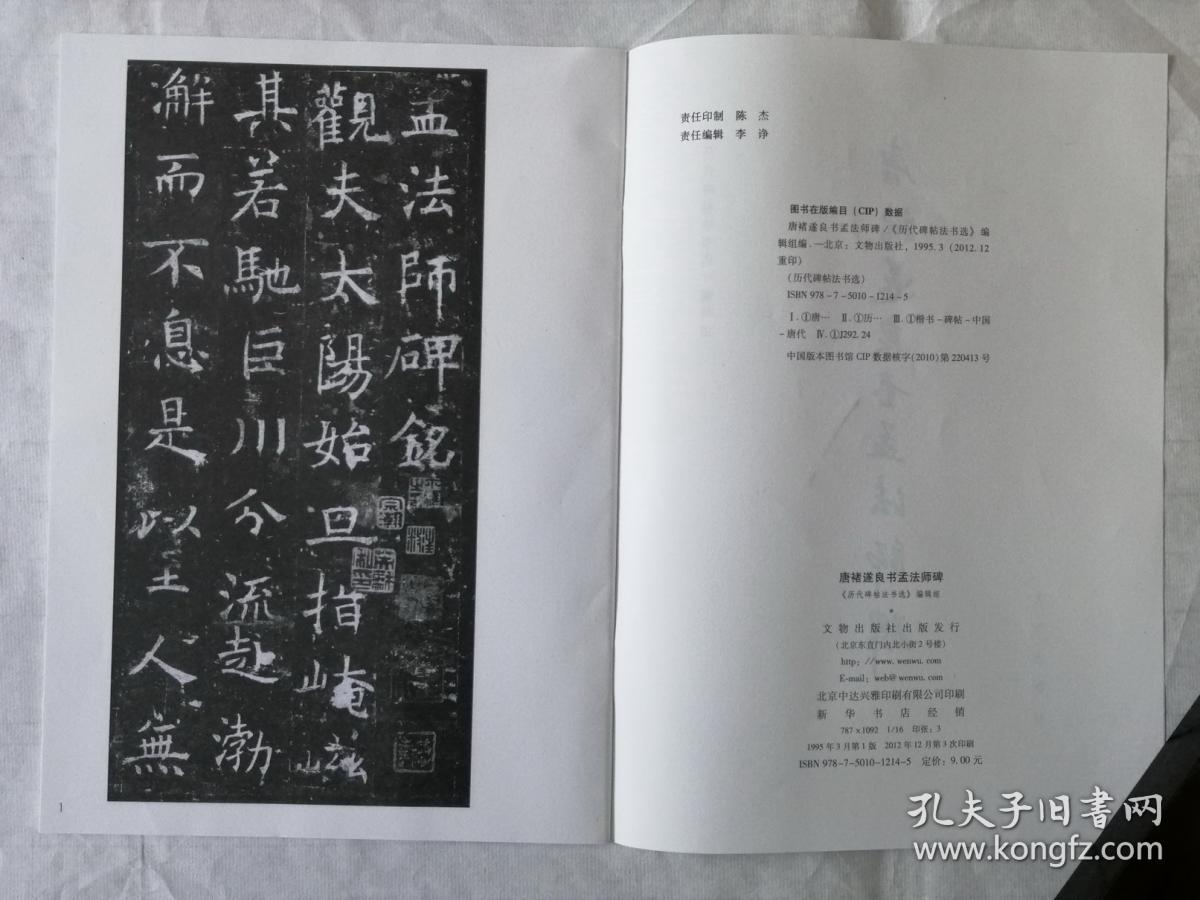 孟法師碑銘
觀夫太陽始旦指崦嵫
其若馳巨川分流赴渤
澥而不息是以至人無
1
责任印制 陈 杰
责任编辑 李 诤
图书在版编目（CIP）数据
唐褚遂良书孟法师碑／《历代碑帖法书选》编
辑组编．—北京：文物出版社，1995.3（2012.12
重印）
（历代碑帖法书选）
ISBN 978-7-5010-1214-5
Ⅰ.①唐… Ⅱ.①历… Ⅲ.①楷书-碑帖-中国
-唐代 Ⅳ.①J292.24
中国版本图书馆CIP数据核字（2010）第220413号
唐褚遂良书孟法师碑
《历代碑帖法书选》编辑组
*
文物出版社出版发行
（北京东直门内北小街2号楼）
http：//www.wenwu.com
E-mail：web@wenwu.com
北京中达兴雅印刷有限公司印刷
新华书店经销
787×1092 1/16 印张：3
1995年3月第1版 2012年12月第3次印刷
ISBN 978-7-5010-1214-5 定价：9.00元
孔夫子旧书网
www.kongfz.com